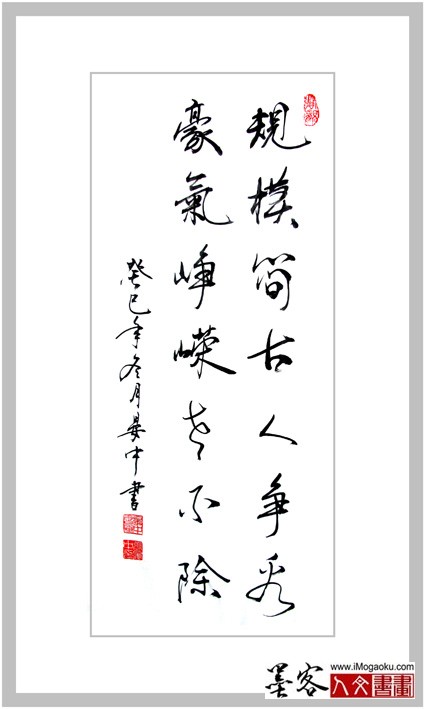 規模簡古人爭看
豪氣崢嶸老不除
癸巳年冬月晏中書
墨客
www.iMogaoku.com
人文書畫